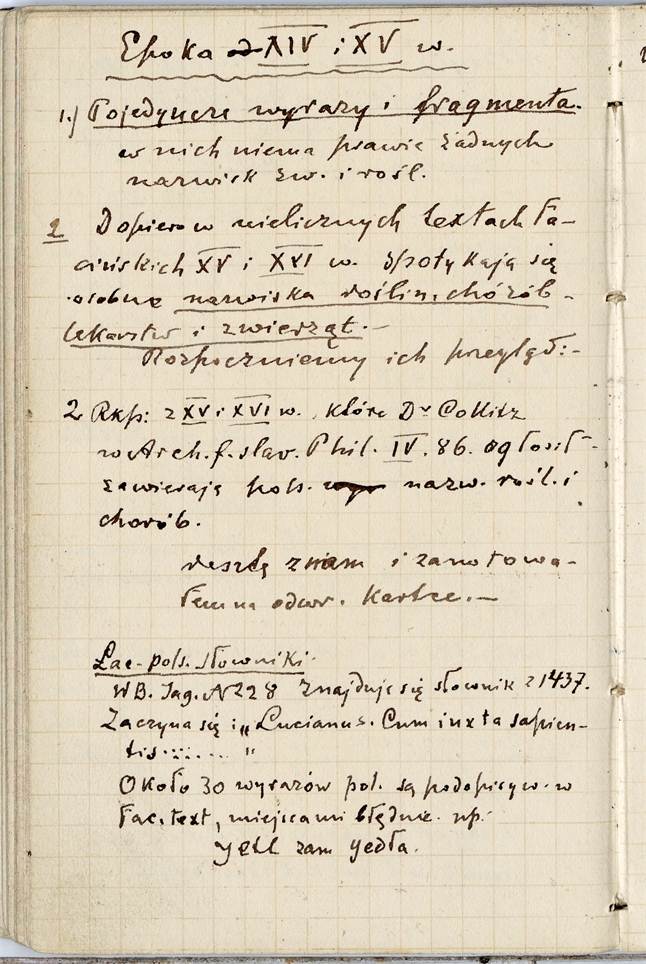 Epoka XIV i XV w.
1.) Pojedyncze wyrazy i fragmenta.
w nich niema prawie żadnych
nazwisk zw. i rośl.
2 Dopiero w nielicznych textach ła-
cińskich XV i XVI w. spotykają się
osobne nazwiska roślin, chorób-
lekarstw i zwierząt.-
Rozpoczniemy ich przegląd:-
2 Rkp: z XV i XVI w. które Dr Collitz
w Arch. f. slav. Phil. IV. 86. ogłosił-
zawierają pols. nazw. rośl. i
chorób.
resztę znam i zanotowa-
łem na odwr. kartce.-
Łac-pols. słowniki.
W B. Jag. N 228 znajduje się słownik z 1437.
Zaczyna się i „Lucianus. Cum iuxta sapien-
tis ........ "
Około 30 wyrazów pol. są podopisyw. w
łac. text, miejscami błędnie. np.
yell zam yedła.